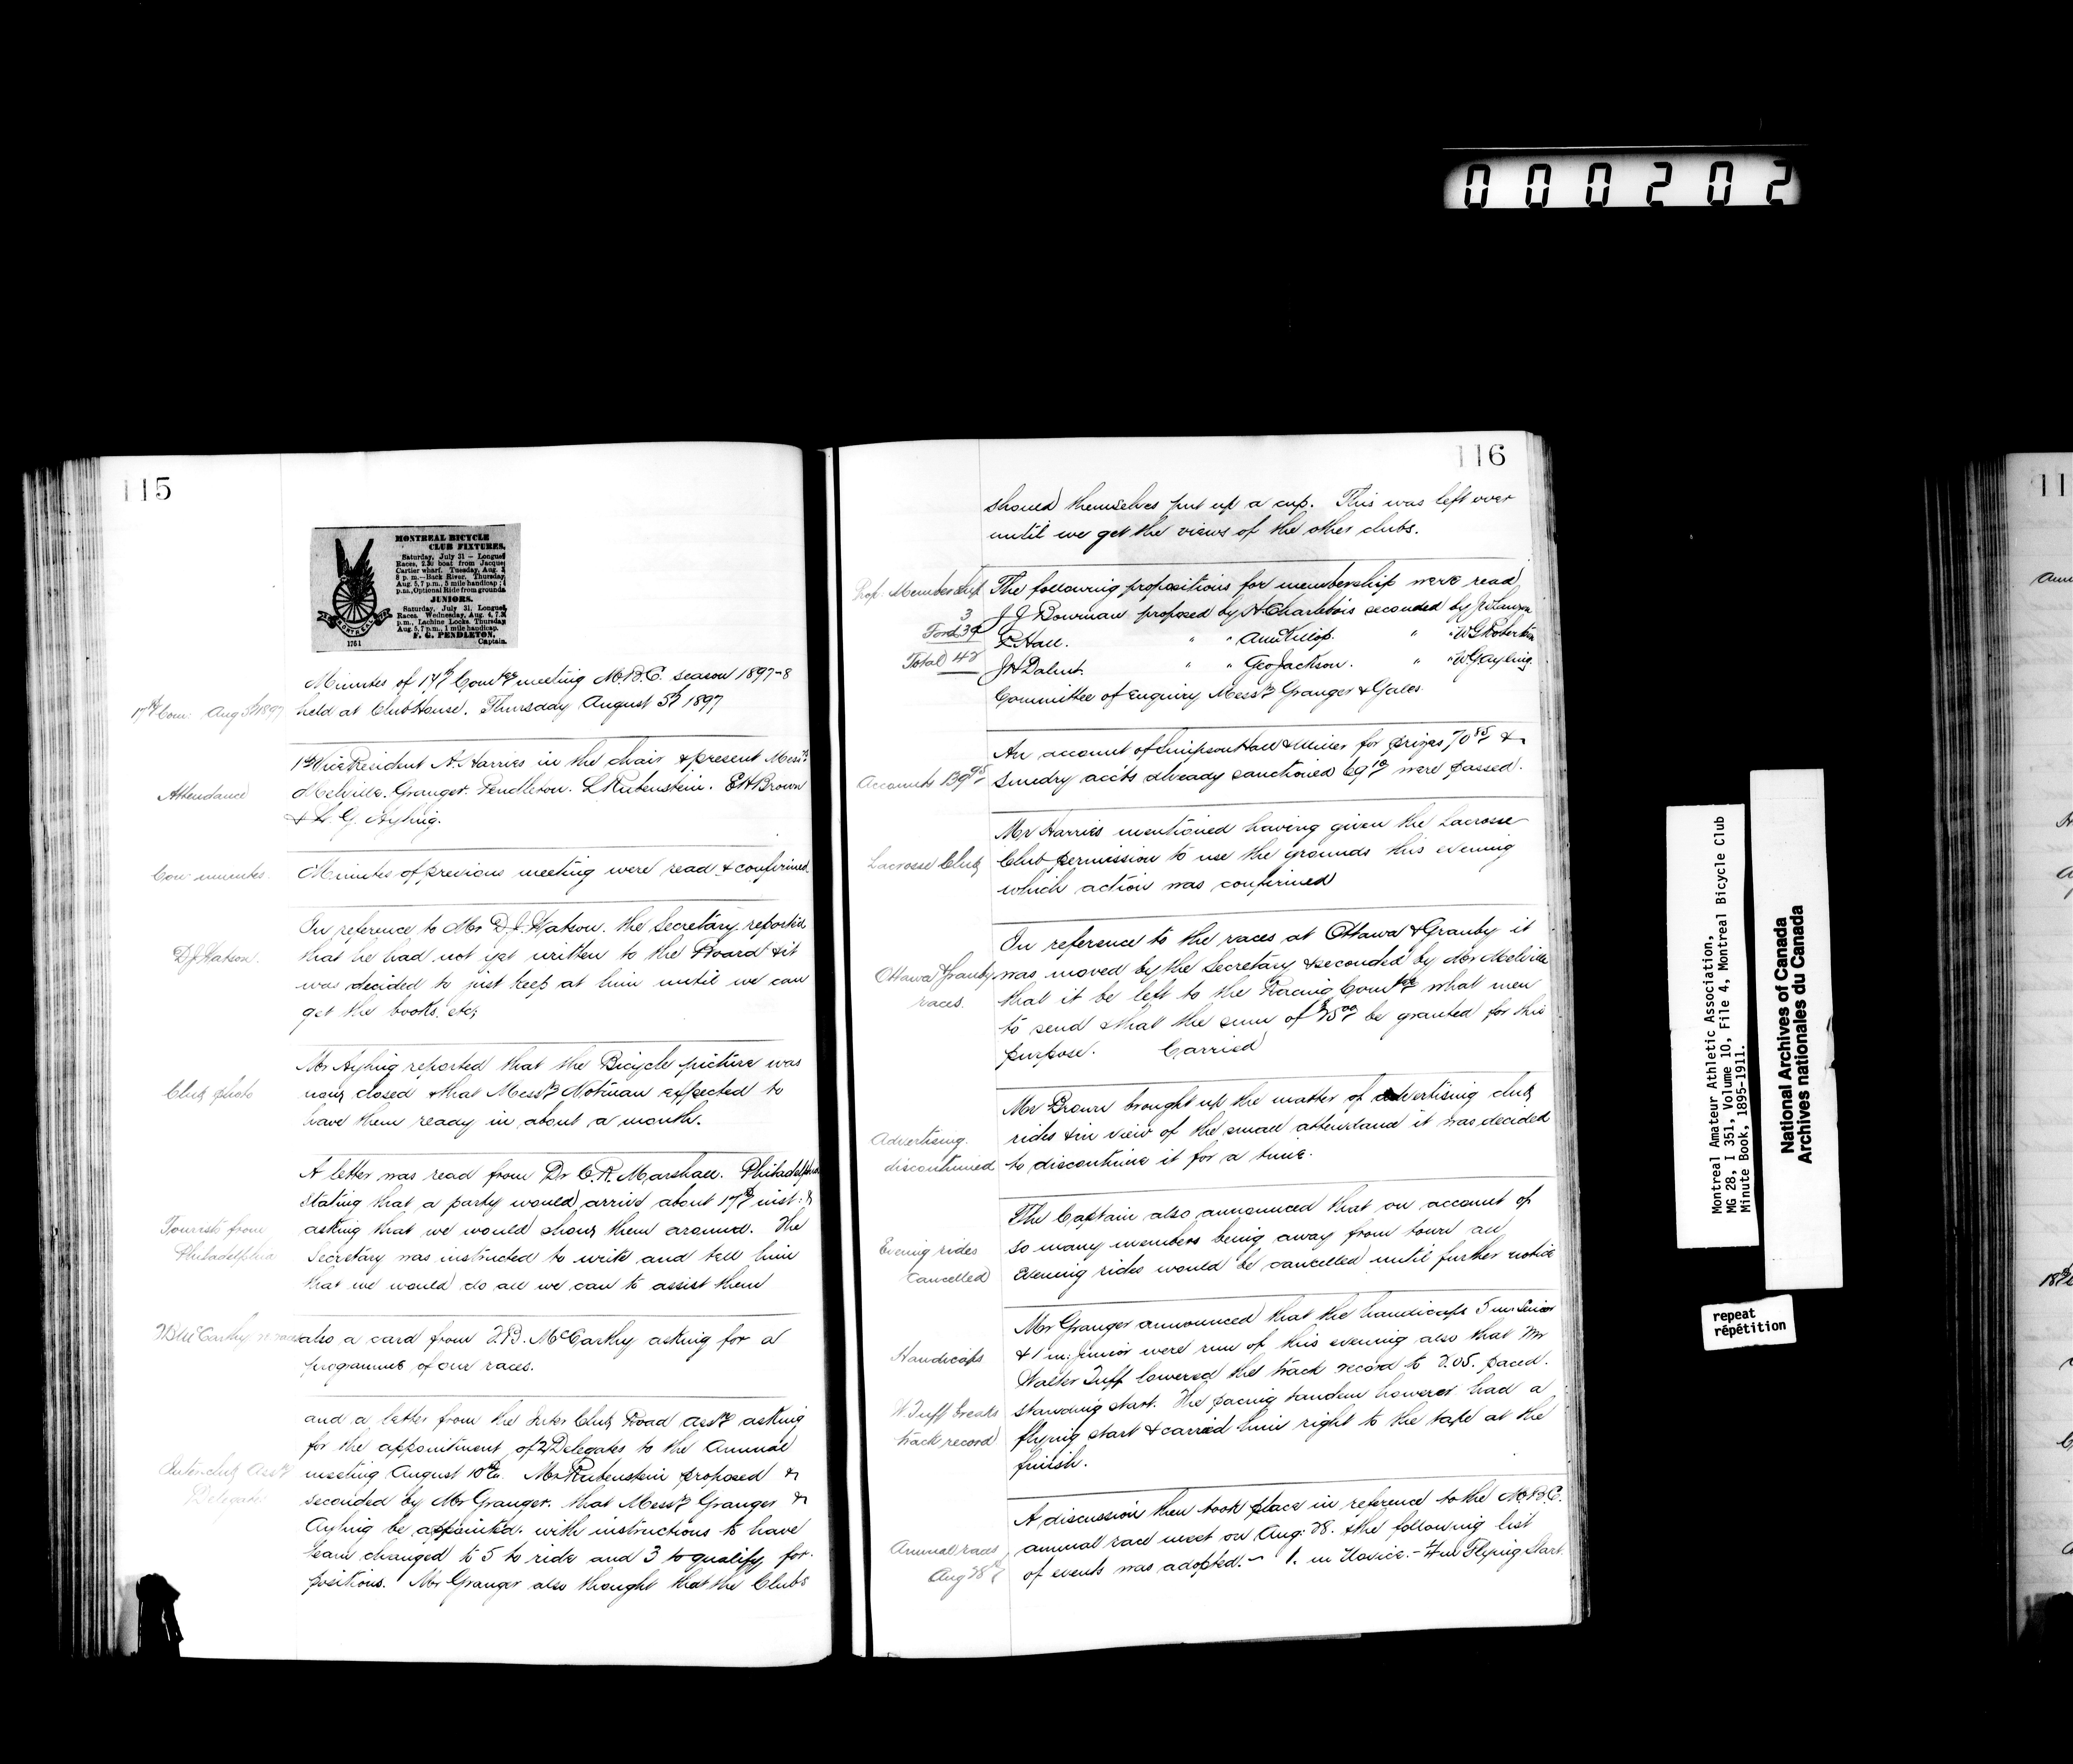 000202
115
MONTREAL BICYCLE
CLUB FIXTURES.
Saturday, July 31 — Longueuil
Races, 2.30 boat from Jacques
Cartier wharf. Tuesday, Aug. 3
8 p. m.—Back River. Thursday,
Aug. 5, 7 p.m., 5 mile handicap;
p.m., Optional Ride from grounds
JUNIORS.
Saturday, July 31, Longueuil
Races. Wednesday, Aug. 4, 7.30
p.m., Lachine Locks. Thursday
Aug. 5, 7 p.m., 1 mile handicap.
F. G. PENDLETON,
Captain.
MONTREAL
1751
Minutes of 17th Comtee meeting M.B.C. season 1897-8
17th Com: Aug 5th 1897 held at ClubHouse. Thursday August 5th 1897
1st Vice President A. Harries in the chair & present Messrs
Attendance Melville. Granger. Pendleton. L Rubenstein. E H Brown
& W. G. Ayling.
Con minutes. Minutes of previous meeting were read & confirmed
In reference to Mr D. J. Watson. the Secretary reported
D J Watson. that he had not yet written to the Board & it
was decided to just keep at him until we can
get the books. etc;
Mr Ayling reported that the Bicycle picture was
Club photo now closed & that Messrs Notman expected to
have them ready in about a month.
A letter was read from Dr C. R. Marshall. Philadelphia
stating that a party would arrive about 17th inst: &
Tourists from asking that we would show them around. The
Philadelphia Secretary was instructed to write and tell him
that we would do all we can to assist them
McCarthy also a card from McCarthy asking for a
programme of our races.
and a letter from the Inter Club Road assn asking
for the appointment of 2 Delegates to the Annual
Interclub Assn meeting August 10th. Mr Rubenstein proposed &
Delegates seconded by Mr Granger. that Messrs Granger &
Ayling be appointed. with instructions to have
team changed to 5 to ride and 3 to qualify for
positions. Mr Granger also thought that the Clubs
116
should themselves put up a cup. This was left over
until we get the views of the other clubs.
Prop. Membership The following propositions for membership were read
3 J J Bowman proposed by H Charlebois seconded by
Ford 39 E Hall. " " " " W G Robertson
Total 42 J H Dalut. " " Geo Jackson. " " W G Ayling.
Committee of Enquiry Messrs Granger & Gales
An account of Simpson Hall & Miller for prizes 70 85 &
Accounts 139 95 Sundry acc'ts already sanctioned 69 10 were passed.
Mr Harries mentioned having given the Lacrosse
Lacrosse Club Club permission to use the grounds this evening
which action was confirmed
In reference to the races at Ottawa & Granby it
Ottawa & Granby was moved by the Secretary & seconded by Mr Melville
races. that it be left to the Racing Comtee what men
to send & that the sum of $25 00 be granted for this
purpose. Carried
Mr Brown brought up the matter of advertising club
Advertising. rides & in view of the small attendance it was decided
discontinued to discontinue it for a time.
The Captain also announced that on account of
so many members being away from town all
Evening rides evening rides would be cancelled until further notice
Cancelled
Mr Granger announced that the handicaps 5 m: Senior
Handicaps & 1 m: junior were run of this evening also that Mr
Walter Tuff lowered the track record to 2.05. paced.
W. Tuff breaks standing start. The pacing tandem however had a
track record flying start & carried him right to the tape at the
finish.
A discussion then took place in reference to the M.B.C.
Annual races annual race meet on Aug: 28. & the following list
Aug 28th of events was adopted. — 1. m Novice. — ¼ m Flying Start.
Montreal Amateur Athletic Association,
MG 28, I 351, Volume 10, File 4, Montreal Bicycle Club
Minute Book, 1895-1911.
National Archives of Canada
Archives nationales du Canada
repeat
répétition
11